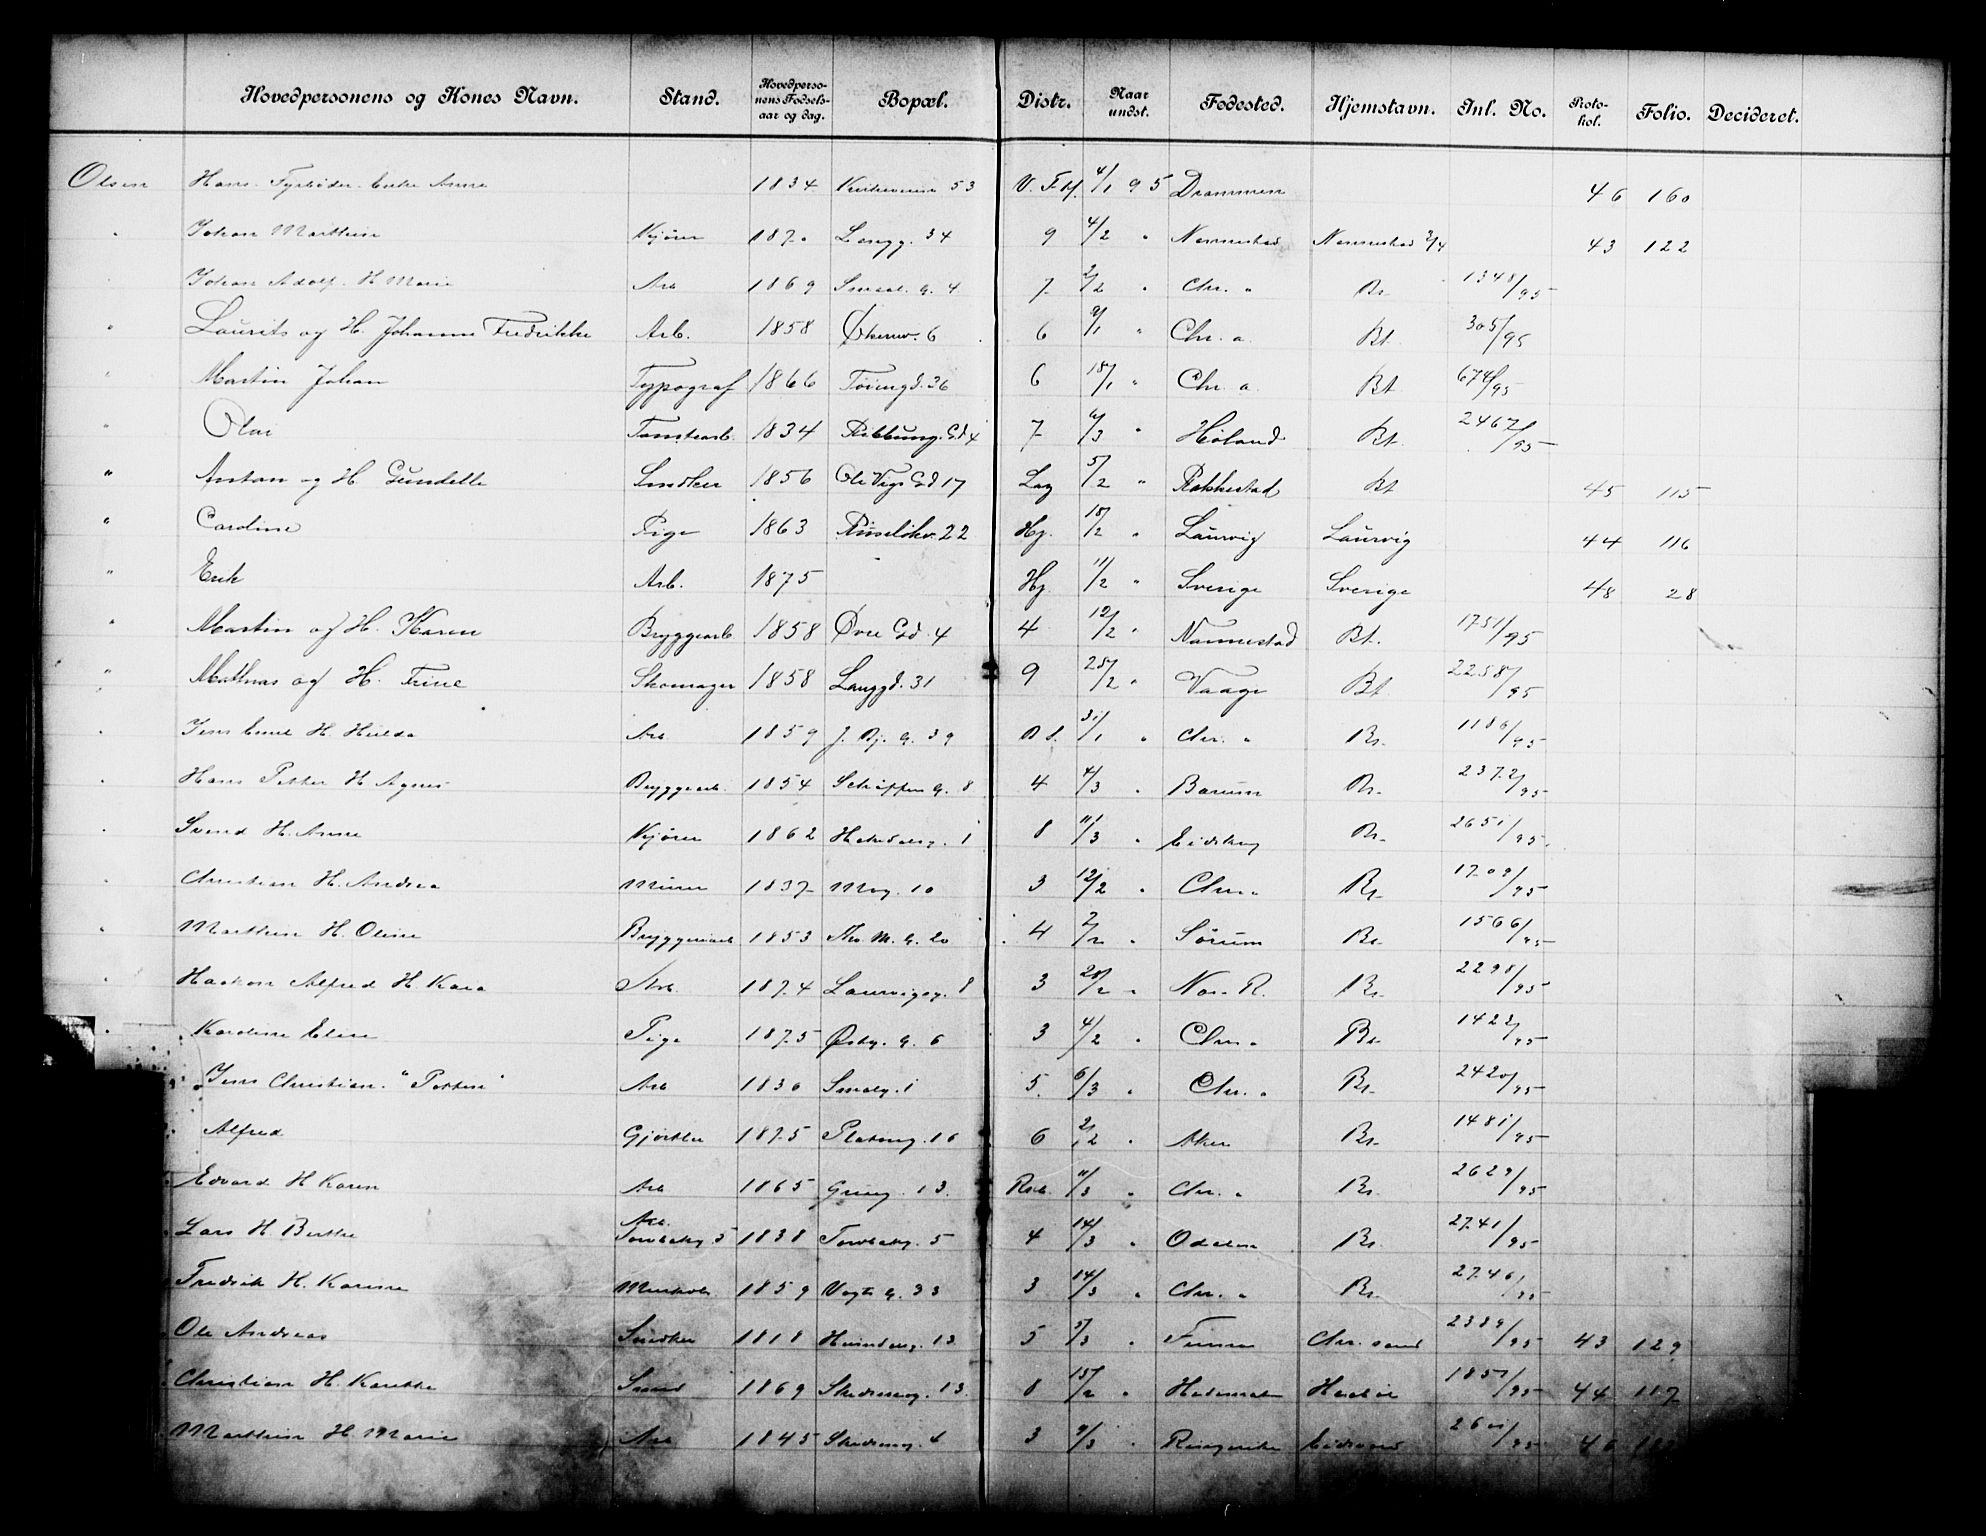 Hovedpersonens og Kones Navn. Stand. Hovedpersonens Fødselsaar og dag. Bopæl. Distr. Naar undst. Fødested. Hjemstavn. Inl. No. Protokol. Folio. Decideret.
Olsen Hans Fyrbøder Enke Anne 1834 53 V. F. M. 4/1 95 Drammen 46 160
" Johan Marthin Kjører 1870 Langg. 34 9 4/2 " Nannestad Nannestad 43 122
" Johan Adolf. H Marie Arb 1869 Smaal. g. 4 7 2/2 " Chr. a Bt. 1348/95
" Laurits og H. Johanne Fredrikke Arb. 1858 Økernv. 6 6 9/1 " Chr. a. Bt. 305/95
" Martin Johan Typograf 1866 Tøiengd. 36 6 18/1 " Chr. a. Bt 674/95
" Olav Tomtearb. 1834 Gd 4 7 6/3 " Høland Bt. 2467/95
" Anton og H Gundelle Snedker 1856 Ole Vigs Gd 17 Lag 5/2 " Rakkestad Bt 45 115
" Caroline Pige 1863 Russeløkv. 22 Hj. 18/2 " Laurvig Laurvig 44 116
" Erik Arb. 1875 Hj. 11/2 " Sverige Sverige 48 28
" Martin og H. Karen Bryggearb 1858 Øvre Gd. 4 4 12/2 " Nannestad Bt. 1751/95
" Mathias og H. Trine Skomager 1858 Langgd. 31 9 25/2 " Vaage Bt. 2258/95
" Jens Emil H Hulda Arb 1859 J. Bj. G. 39 31/1 " Chr. a Bt. 1186/95
" Hans Petter H Agnes Bryggearb. 1854 Schipper G. 8 4 4/3 " Bærum Bt. 2372/95
" Svend H. Anne Kjører 1862 1 8 11/3 " Eidskog Bt. 2651/95.
" Christian H. Andrea Murer 1837 Mog. 10 3 12/2 " Chr. a Bt. 1709/95
" Marthin H. Oline Bryggeriarb 1853 Th. M. G. 20 4 7/2 " Sørum Bt. 1566/95
" Haakon Alfred H. Kaia Arb 1874 Laurvigsg. 8 3 28/2 " Nes R. Bt. 2298/95
" Karoline Elise Pige 1875 Østg. G. 6 3 4/2 " Chr. a Bt. 1422/95
Jens Christian. "Potten" Arb 1836 Smalg. 1 5. 6/3 " Chr. a Bt. 2420/95
Alfred Gjørtler 1875 Platoug. 16 6 2/2 " Aker Bt. 1481/95
Edvard H Karen Arb 1865 Grueg. 13. 11/3 " Chr. a Bt. 2629/95
Lars H. Berthe Arb. Torvbakg 5 1838 Torvbakg. 5 4 14/3 " Odalen Bt. 2741/95
Fredrik H. Karine 1859 Vogts G. 33 3 14/3 " Chr. a Bt. 2746/95
Ole Andreas Snedker 1818 13 5 5/3 " Chr. sand 2389/95 43 129
Christian H. Karethe Smed 1869 Skedsmog. 13. 8 15/2 " 1851/95 44 117
Marthin H. Marie Arb 1845 Skedsmog. 4 3 9/3 " Ringerike Eidsvold 2601/95 46